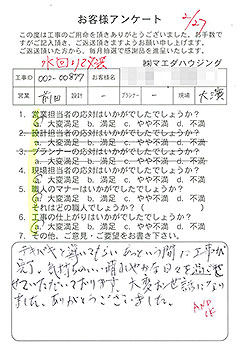 お客様アンケート
2/27
この度は工事のご用命を頂きありがとうございました。お手数で
すがご記入頂き、ご返送頂きますようお願い申し上げます。
ご返送頂いた方から、毎月抽選で感謝品を進呈いたします。
水回り
㈱マエダハウジング
工事ID 002-00877 お客様名
営業 前田 設計 － プランナー － 現場 大濱
1. 営業担当者の応対はいかがでしたでしょうか？
a. 大変満足 b. 満足 c. やや不満 d. 不満
2. 設計担当者の応対はいかがでしたでしょうか？
a. 大変満足 b. 満足 c. やや不満 d. 不満
3. プランナーの応対はいかがでしたでしょうか？
a. 大変満足 b. 満足 c. やや不満 d. 不満
4. 現場担当者の応対はいかがでしたでしょうか？
a. 大変満足 b. 満足 c. やや不満 d. 不満
5. 職人のマナーはいかがでしたでしょうか？
a. 大変満足 b. 満足 c. やや不満 d. 不満
それはどの職人でしょうか？（ ）
6. 工事の仕上がりはいかがでしたでしょうか？
a. 大変満足 b. 満足 c. やや不満 d. 不満
7. その他、ご意見・ご要望をお書き下さい。
テキパキと導いて下さい、あっという間に工事が
完了。気持ちのいい、晴れやかな日々を過ごさ
せていただいております。大変お世話になり
ました。ありがとうございました。